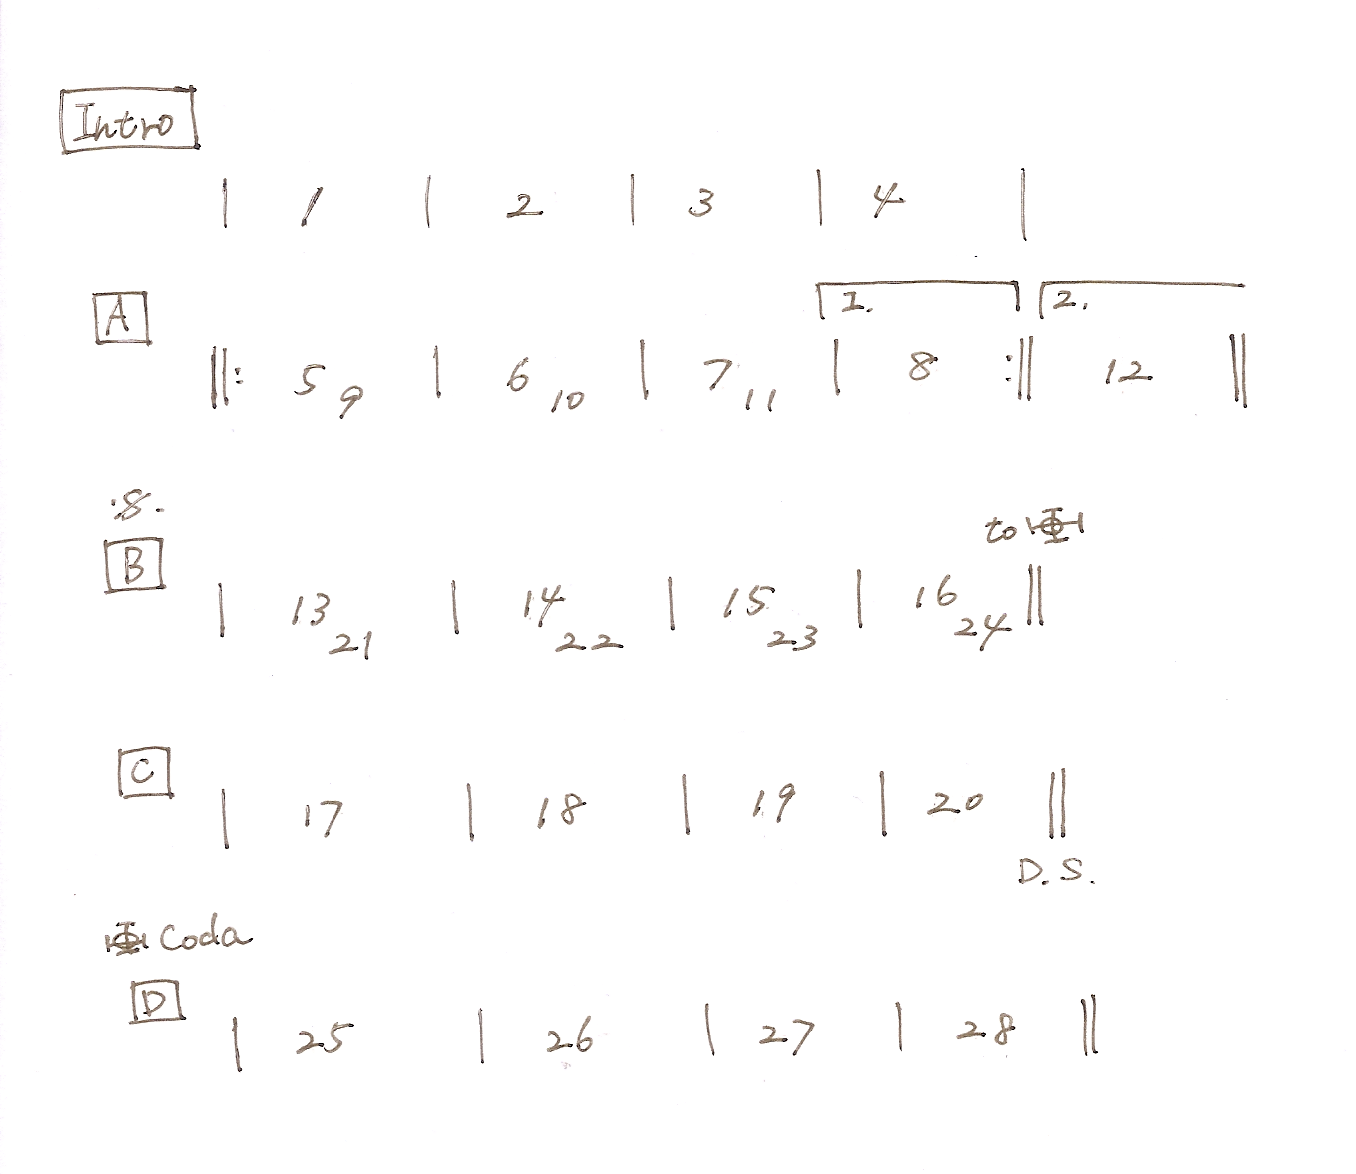 Intro
| 1 | 2 | 3 | 4 |
1. 2.
A
||: 5 9 | 6 10 | 7 11 | 8 :|| 12 ||
𝄋
to 𝄌
B
| 13 21 | 14 22 | 15 23 | 16 24 ||
C
| 17 | 18 | 19 | 20 ||
D.S.
𝄌 Coda
D
| 25 | 26 | 27 | 28 ||